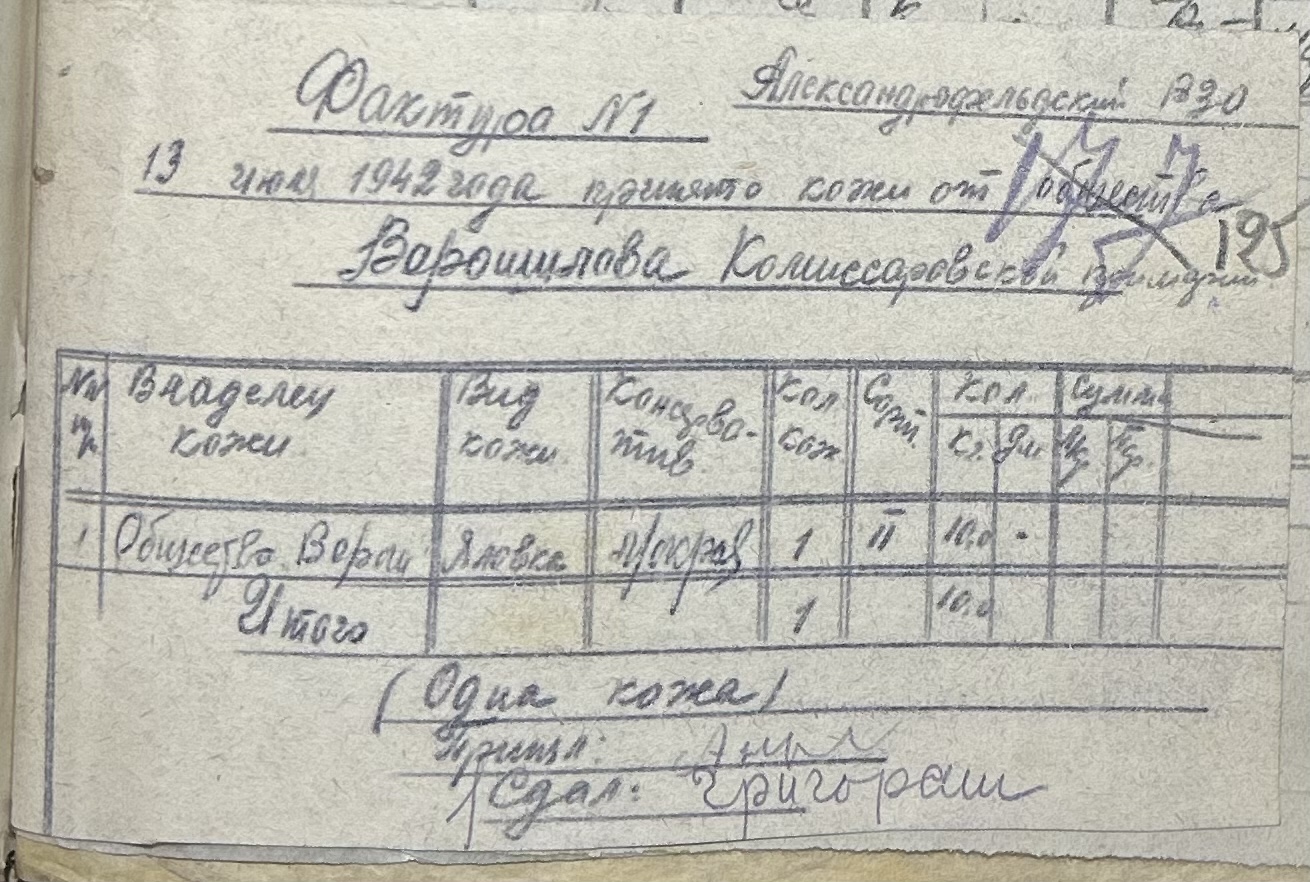 Фактура N1
Александрофельдский
13 июля 1942 года принято кожи от общества
Ворошилова Комиссаровской
125
Владелец кожи
Вид кожи
Кол кож
Сорт.
Кол.
Сумма
Кг. Дм
1 Общество Ворош Яловка 1 II 10,0 -
Итого 1 10,0
(Одна кожа)
Принял:
Сдал: Григораш